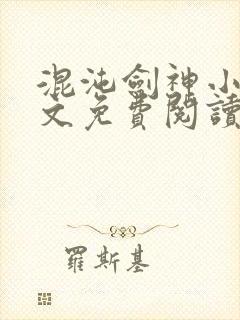 混沌劍神小
文免費閱讀
羅斯基